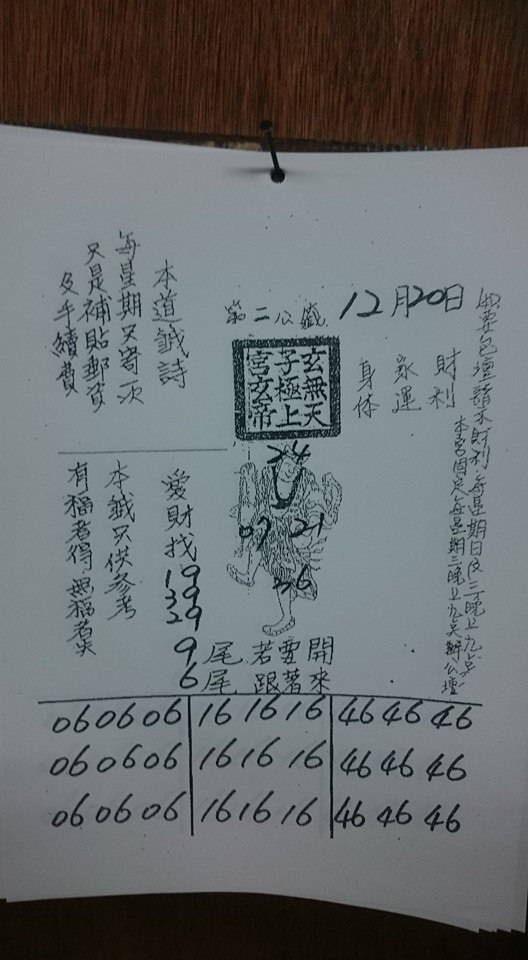 本宮固定每星期三晚上九点辦公壇
12月20日
財利
家運
身体
第二公籤
玄無天
子極上
宮玄帝
24
07 21
36
本道籤詩
每星期只寄一次
只是補貼郵資
及手續費
愛財找
19
39
29
本籤只供參考
有福者得,無福者失
9尾若要開
6尾跟著來
06 06 06 16 16 16 46 46 46
06 06 06 16 16 16 46 46 46
06 06 06 16 16 16 46 46 46